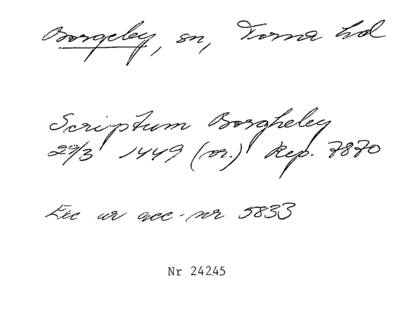 Borgeley, sn, Torna hd
Scriptum Borgheley
29/3 1449 (or.) Rep. 7870
Exc ur acc-nr 5833
Nr 24245